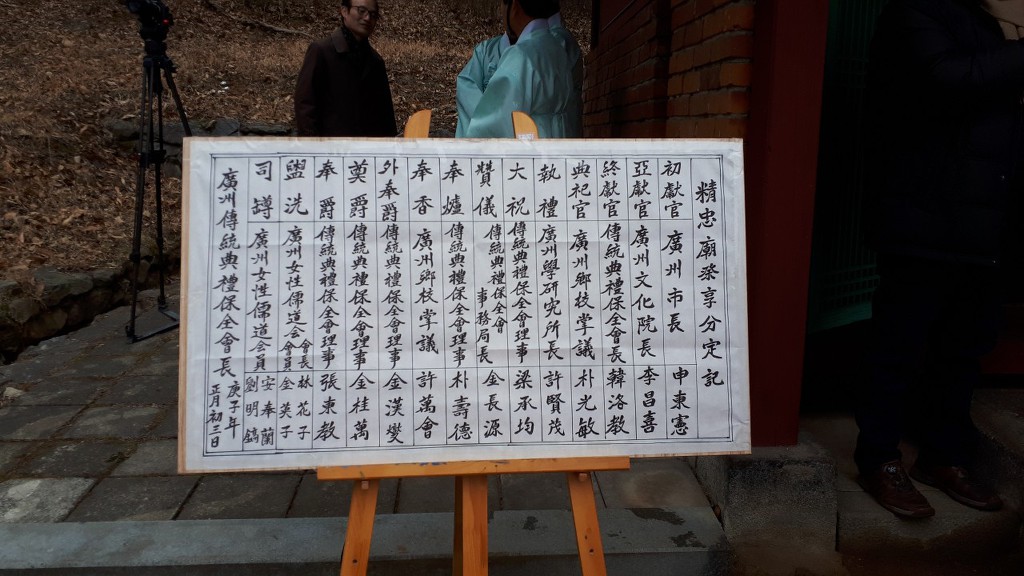 精忠廟祭享分定記
初獻官 廣州市長 申東憲
亞獻官 廣州文化院長 李昌喜
終獻官 傳統典禮保全會長 韓洛教
典祀官 廣州鄉校掌議 朴光敏
執禮 廣州學研究所長 許賢茂
大祝 傳統典禮保全會理事 梁承均
贊儀 傳統典禮保全會事務局長 金長源
奉爐 傳統典禮保全會理事 朴壽德
奉香 廣州鄉校掌議 許萬會
外奉爵 傳統典禮保全會理事 金漢燮
奠爵 傳統典禮保全會理事 金桂萬
奉爵 傳統典禮保全會理事 張東教
盥洗 廣州女性儒道會會長 林花子
會員 金英子
司罇 廣州女性儒道會會員 安奉蘭
劉明鎬
廣州傳統典禮保全會長 庚子年
正月初三日